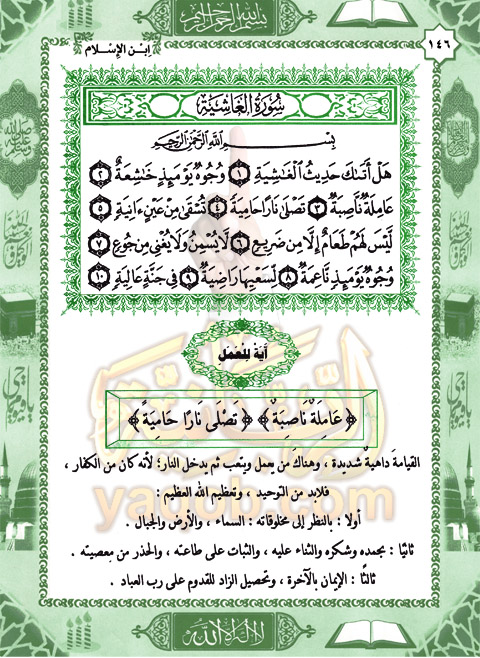 بسم الله الرحمن الرحيم
ابن الإسلام
١٤٦
سُورَةُ الغَاشِيَةِ
بِسْمِ اللَّهِ الرَّحْمَٰنِ الرَّحِيمِ
هَلْ أَتَىٰكَ حَدِيثُ الْغَٰشِيَةِ ١ وُجُوهٌ يَوْمَئِذٍ خَٰشِعَةٌ ٢
عَامِلَةٌ نَّاصِبَةٌ ٣ تَصْلَىٰ نَارًا حَامِيَةً ٤ تُسْقَىٰ مِنْ عَيْنٍ ءَانِيَةٍ ٥
لَّيْسَ لَهُمْ طَعَامٌ إِلَّا مِن ضَرِيعٍ ٦ لَّا يُسْمِنُ وَلَا يُغْنِي مِن جُوعٍ ٧
وُجُوهٌ يَوْمَئِذٍ نَّاعِمَةٌ ٨ لِّسَعْيِهَا رَاضِيَةٌ ٩ فِي جَنَّةٍ عَالِيَةٍ ١٠
آيَةٌ لِلْعَمَلِ
﴿ عَامِلَةٌ نَاصِبَةٌ ﴾ ﴿ تَصْلَى نَارًا حَامِيَةً ﴾
القيامة داهيةٌ شديدة ، وهناك من يعمل ويتعب ثم يدخل النار؛ لأنه كان من الكفار ،
فلابد من التوحيد ، وتعظيم الله العظيم :
أولاً : بالنظر إلى مخلوقاته : السماء ، والأرض والجبال .
ثانيًا : بحمده وشكره والثناء عليه ، والثبات على طاعته ، والحذر من معصيته .
ثالثًا : الإيمان بالآخرة ، وتحصيل الزاد للقدوم على رب العباد .
yaqob.com
لا إله إلا الله